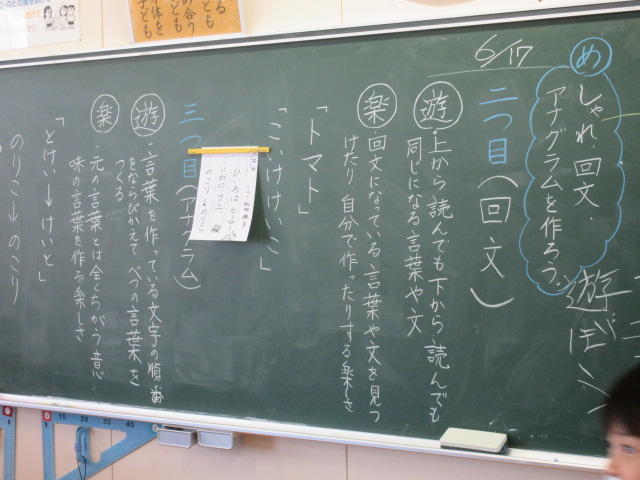 6/17
め しゃれ、回文、
アナグラムを作ろう。
遊ぼう
二つ目(回文)
遊・上から読んでも下から読んでも
同じになる言葉や文
楽・回文になっている言葉や文を見つ
けたり、自分で作ったりする楽しさ
「トマト」
「こいけけいこ」
三つ目(アナグラム)
遊・言葉を作っている文字の順番
をならびかえて、べつの言葉を
つくる
楽・元の言葉とは全くちがう意
味の言葉を作る楽しさ
「とけい→けいと」
のりこ→のこり